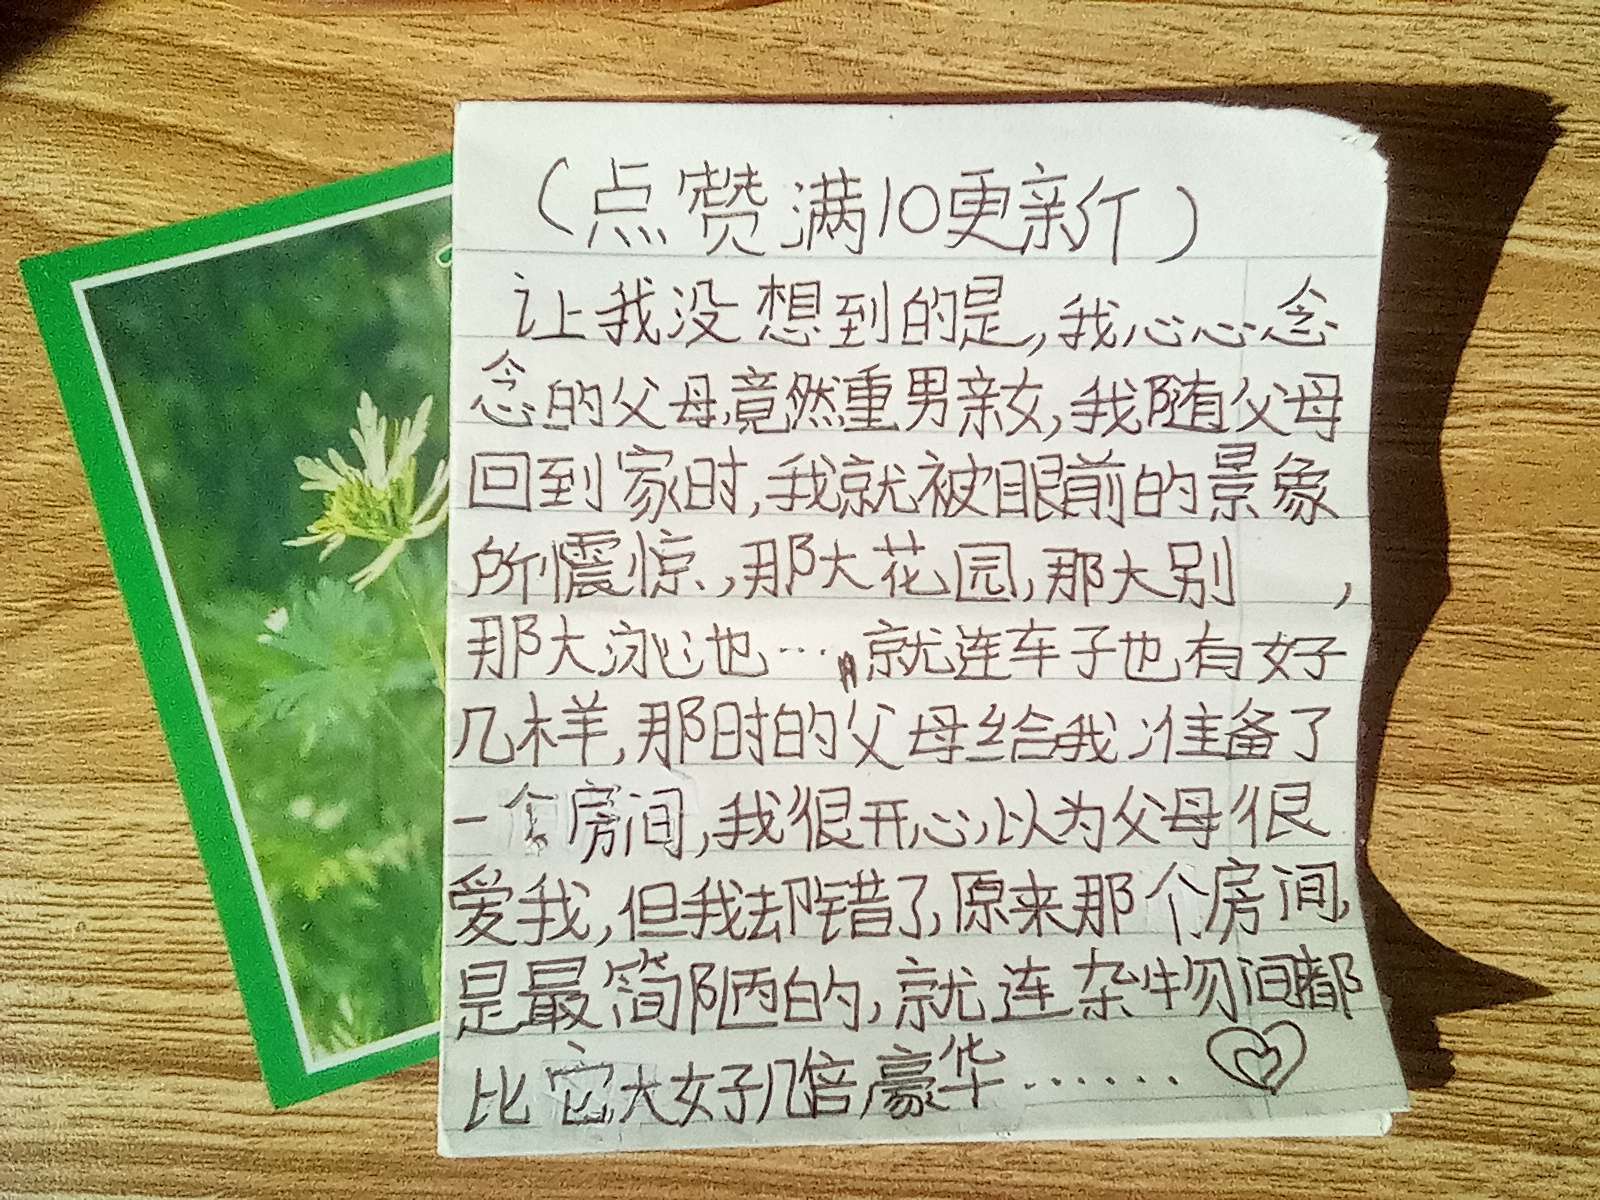 （点赞满10更新）
让我没想到的是,我心心念
念的父母,竟然重男亲女,我随父母
回到家时,我就被眼前的景象
所震惊,那大花园,那大别　,
那大泳池…,就连车子也有好
几样,那时的父母给我准备了
一个房间,我很开心,以为父母很
爱我,但我却错了,原来那个房间,
是最简陋的,就连杂物间都
比它大好几倍,豪华……